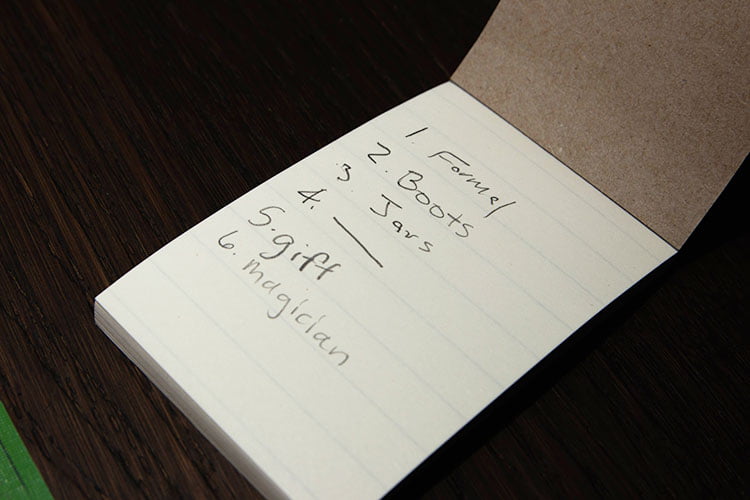 1. Formal
2. Boots
3. Jars
4. __
5. gift
6. magician